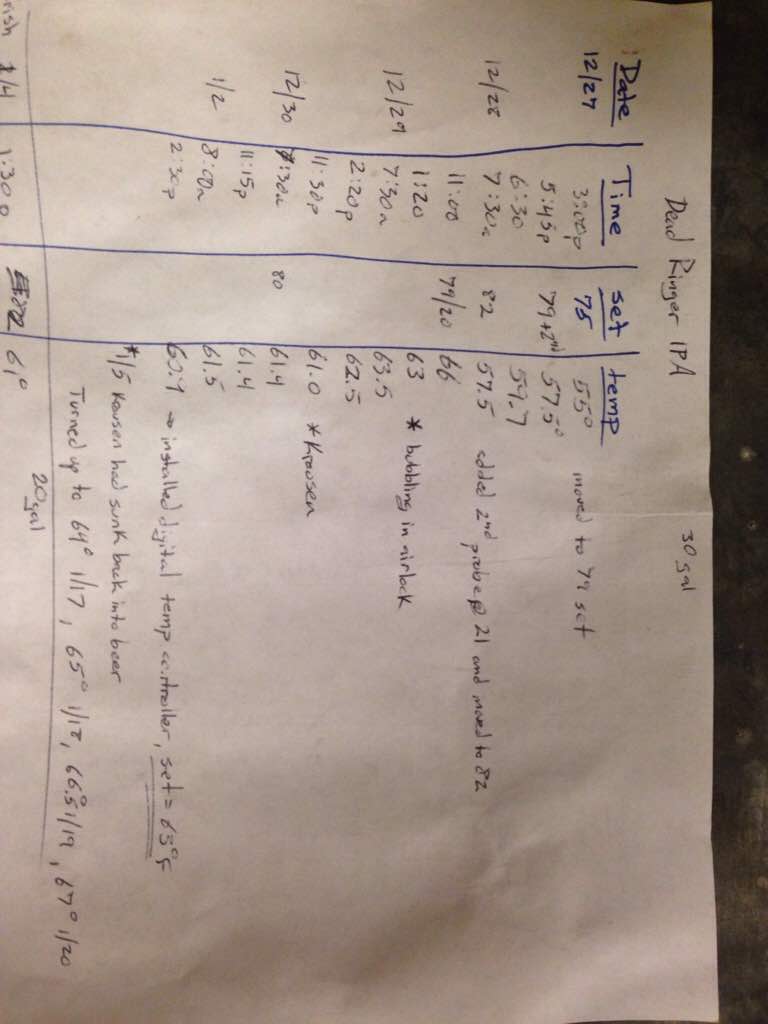 Dead Ringer IPA 30 gal
Date Time set temp
12/27 3:00p 75 55° moved to 79 set
5:45p 79+2nd 57.5°
6:30 59.7
12/28 7:30a 82 57.5 added 2nd probe @ 21 and moved to 82
11:00 79/20 66
1:20 63 * bubbling in airlock
12/29 7:30a 63.5
2:20p 62.5
11:30p 61.0 * Krausen
12/30 :30a 80 61.4
11:15p 61.4
1/2 8:00a 61.5
2:30p 60.9 → installed digital temp controller, set = 63°F
*1/5 Krausen had sunk back into beer
Turned up to 64° 1/17, 65° 1/18, 66.5 1/19, 67° 1/20
20gal
rish 1/4 1:30p 61°